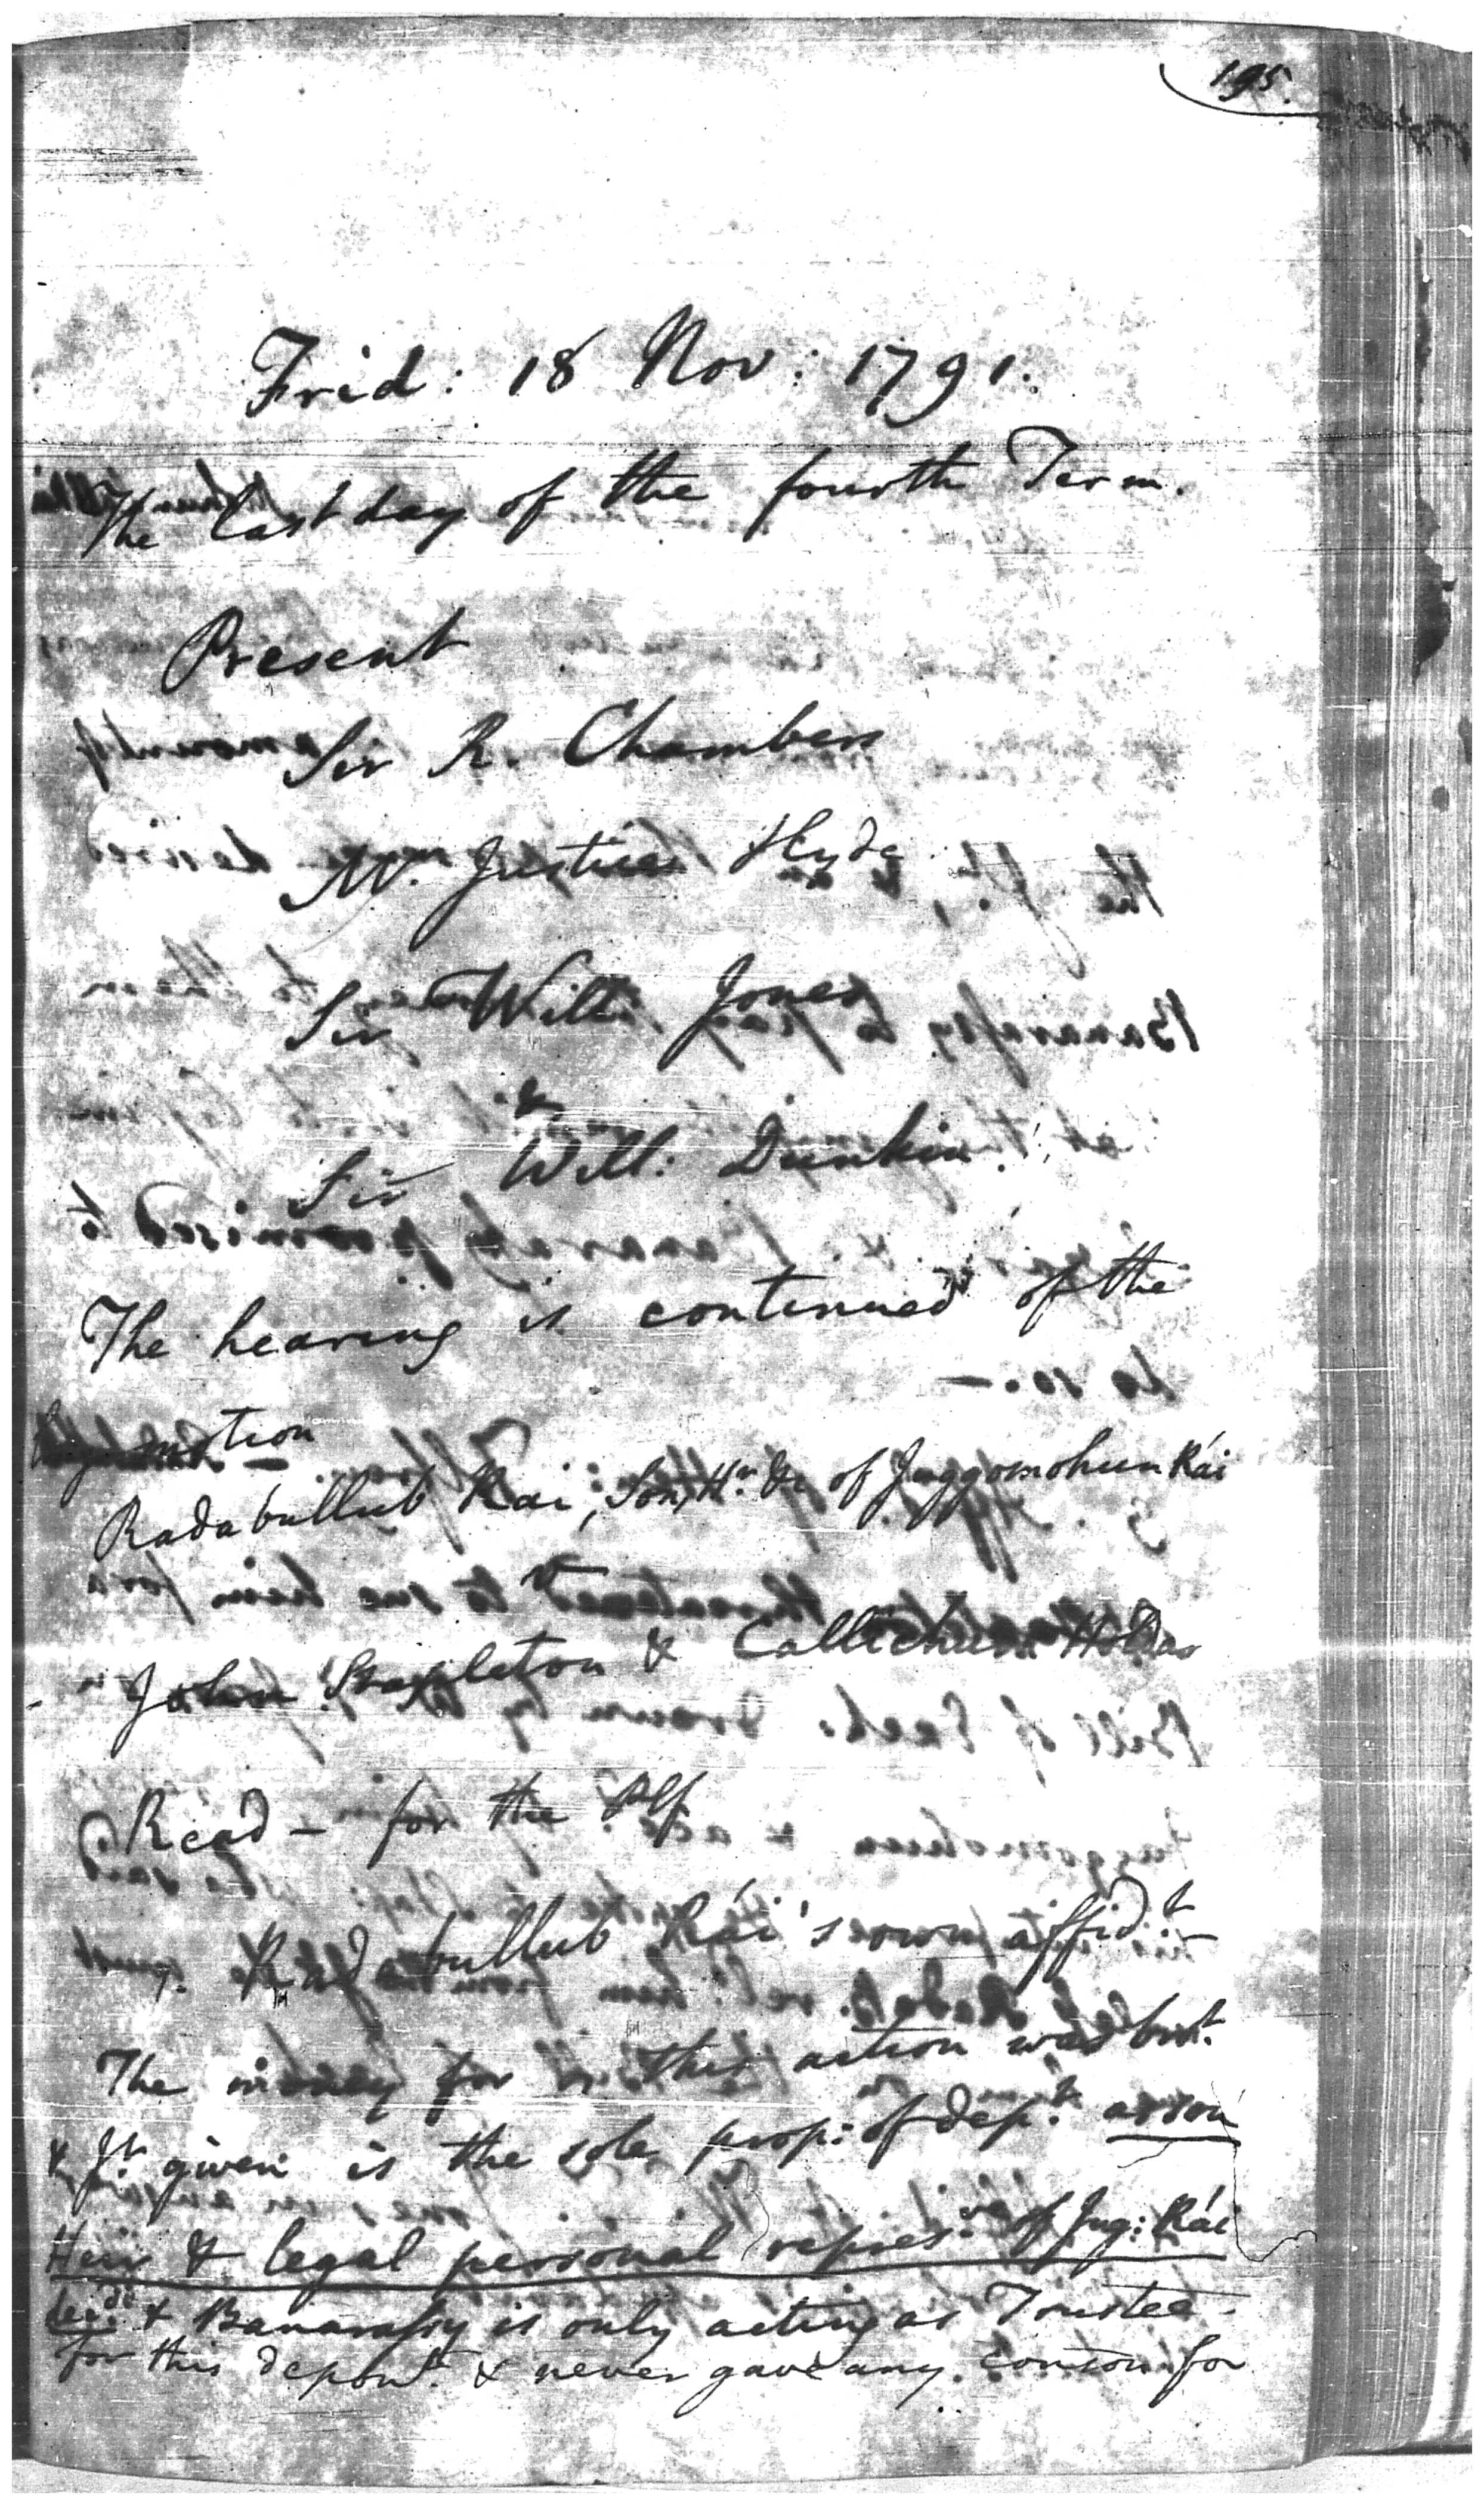 195.
Frid: 18 Nov: 1791.
The last day of the fourth Term.
Present
Sir R. Chambers
Mr. Justice Hyde
Sir Willm Jones
&
Sir Will: Dunkin.
The hearing is continued of the
motion
Radabullub Rai, Son, Hr. &c of Juggomohun Rái
v
John Stapleton & Callichurn Holdar
Read – for the Plf
Radabullub Rái's own affidt
The money for wh this action was brot.
& Jt given is the sole prop: of dept. as son
Heir & legal personal represve of Jug: Rái
decd. & Banarassy is only acting as Trustee
for this depont. & never gave any conson. for